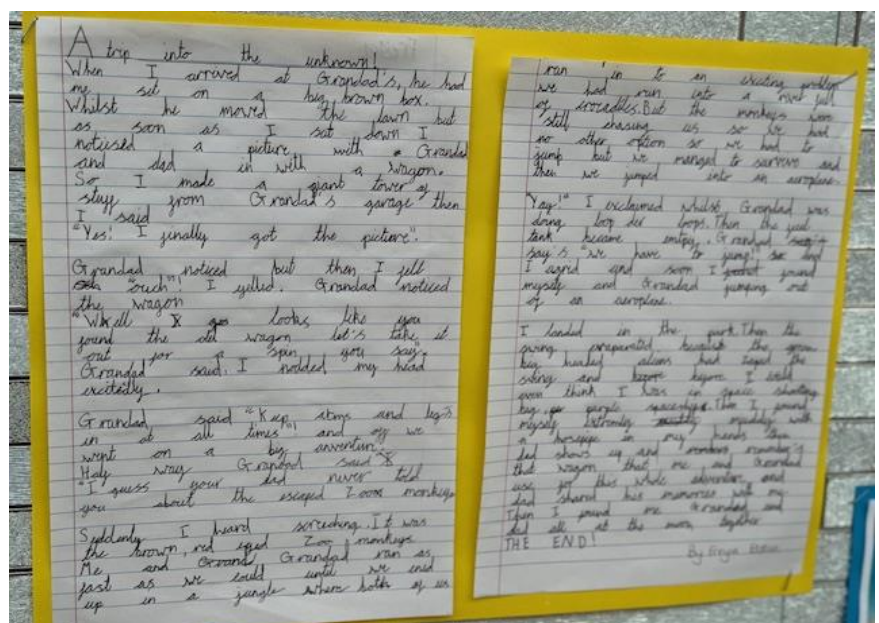 A trip into the unknown!
When I arrived at Grandad's, he had
me sit on a big brown box.
Whilst he mowed the lawn but
as soon as I sat down I
noticed a picture with Grandad
and dad in with a wagon.
So I made a giant tower of
stuff from Grandad's garage then
I said
"Yes! I finally got the picture".
Grandad noticed but then I fell
"ouch"! I yelled. Grandad noticed
the wagon
looks like you
found the old wagon let's take it
out for a spin you say"
Grandad said. I nodded my head
excitedly.
Grandad said "Keep arms and leg's
in at all times"! and off we
went on a big
Half way Grandad said
"I guess your dad never told
you about the escaped Zoo monkeys
Suddenly I heard screching. It was
the brown, red eyed Zoo monkeys.
Me and Grandad ran as
fast as we could until we
up in a jungle where both of us
ran in to an exiting problem
we had ran into a river full
of crocadiles. But the monkeys were
still chasing us so we had
no other option so we had to
jump but we manged to survive and
then we jumped into an aeroplane.
"Yay!" I exclaimed whilst Grandad was
doing loop der loops. Then the fuel
tank became empty. Grandad
say's "we have to jump!" and
I agred and soon I found
myself and Grandad jumping out
of an aeroplane.
I landed in the park. Then the
swing because the
big headed aliens had the
swing and before I could
even think I was in space shooting
big purple spaceships. Then I found
myself muddy with
a hosepipe in my hands then
dad shows up and
that wagon that me and Grandad
use for this whole adventure and
dad shared his memories with my
Then I found me Grandad and
dad all at the moon together
THE END!
By